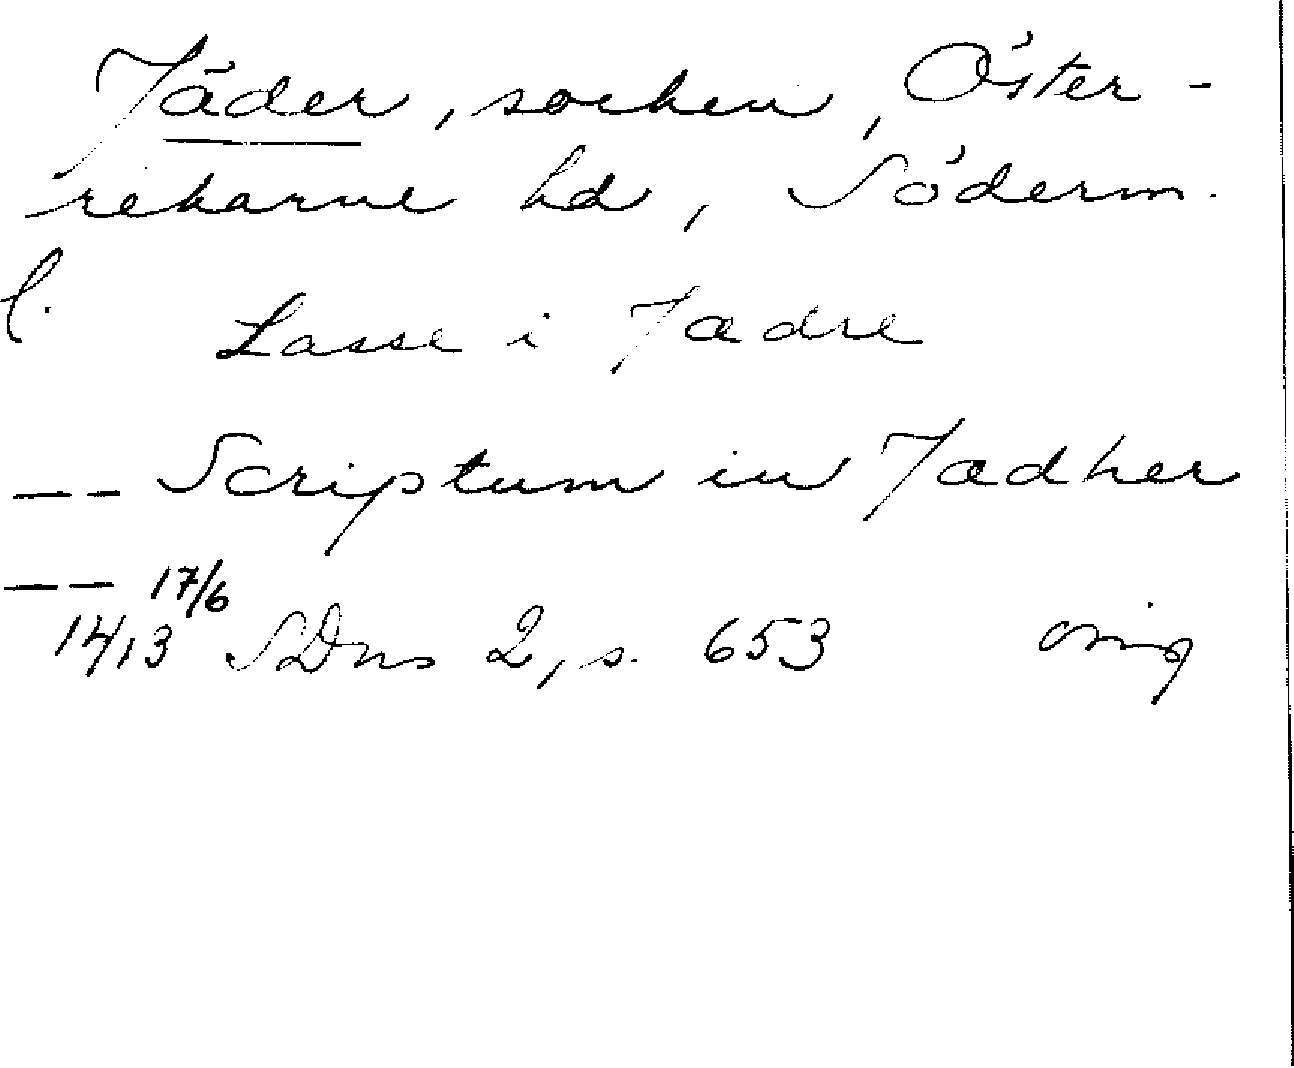 Jäder, socken, Öster-
rekarne hd, Söderm.
l.
Lasse i Jædre
-- Scriptum in Jædher
-- 17/6
1413 SDns 2, s. 653 orig